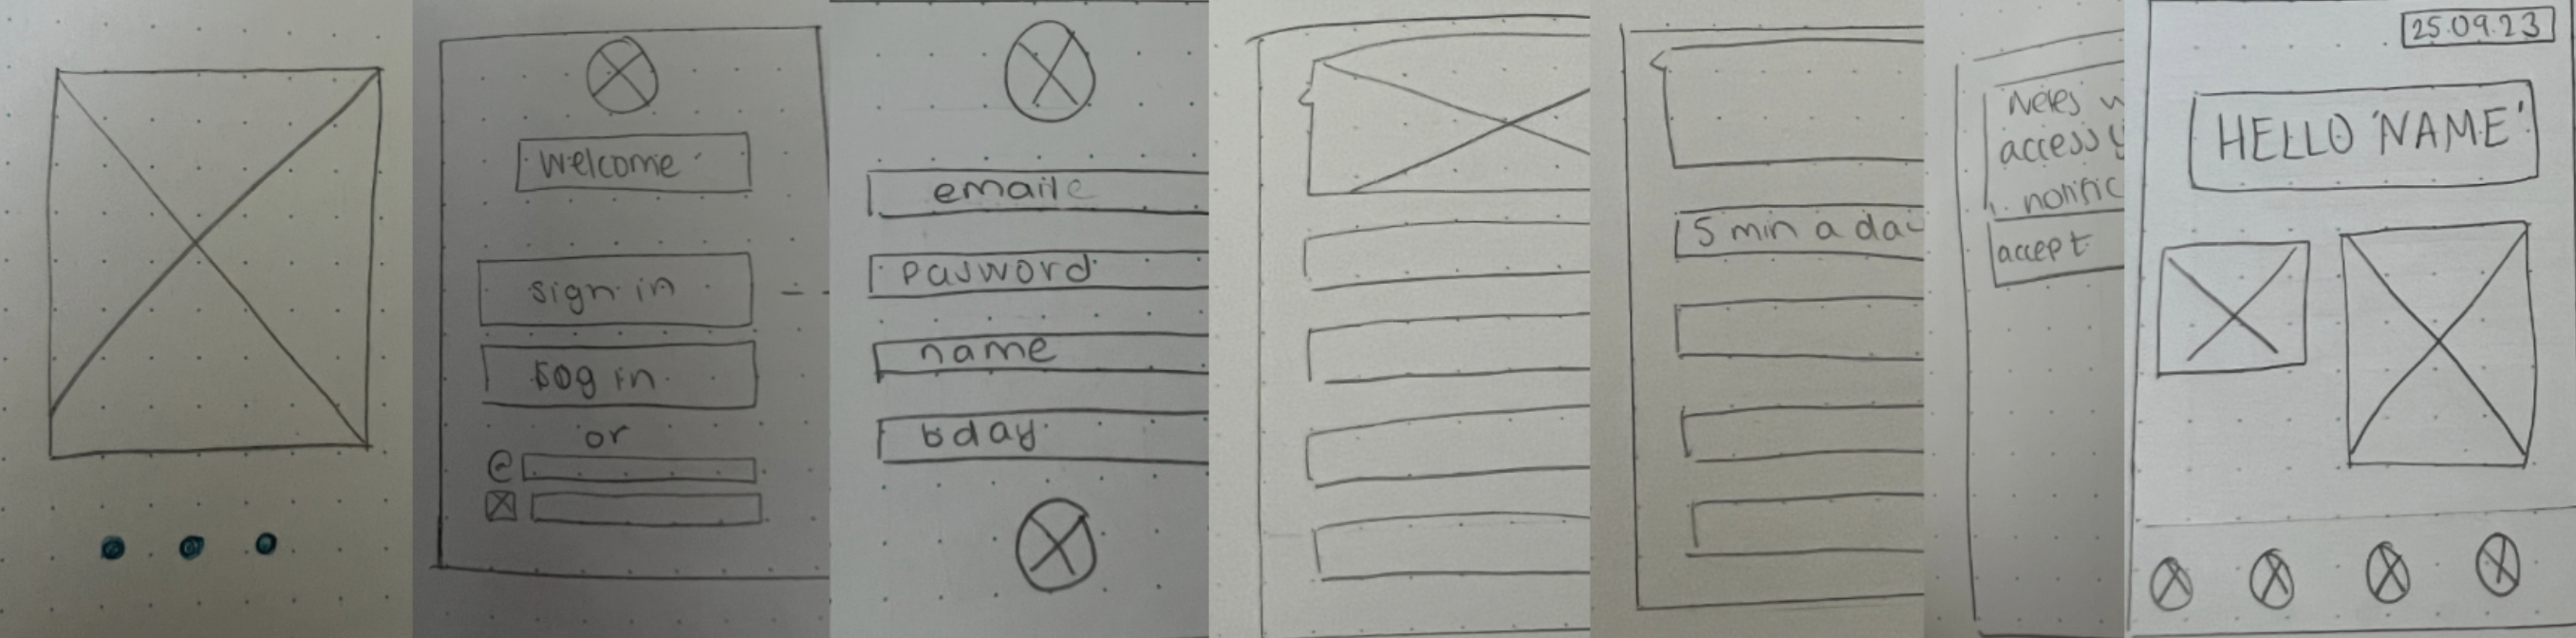 Welcome
sign in
Log in
or
@
emaile
pasword
name
bday
5 min a da
access y
notific
accept
25.09.23
HELLO 'NAME'